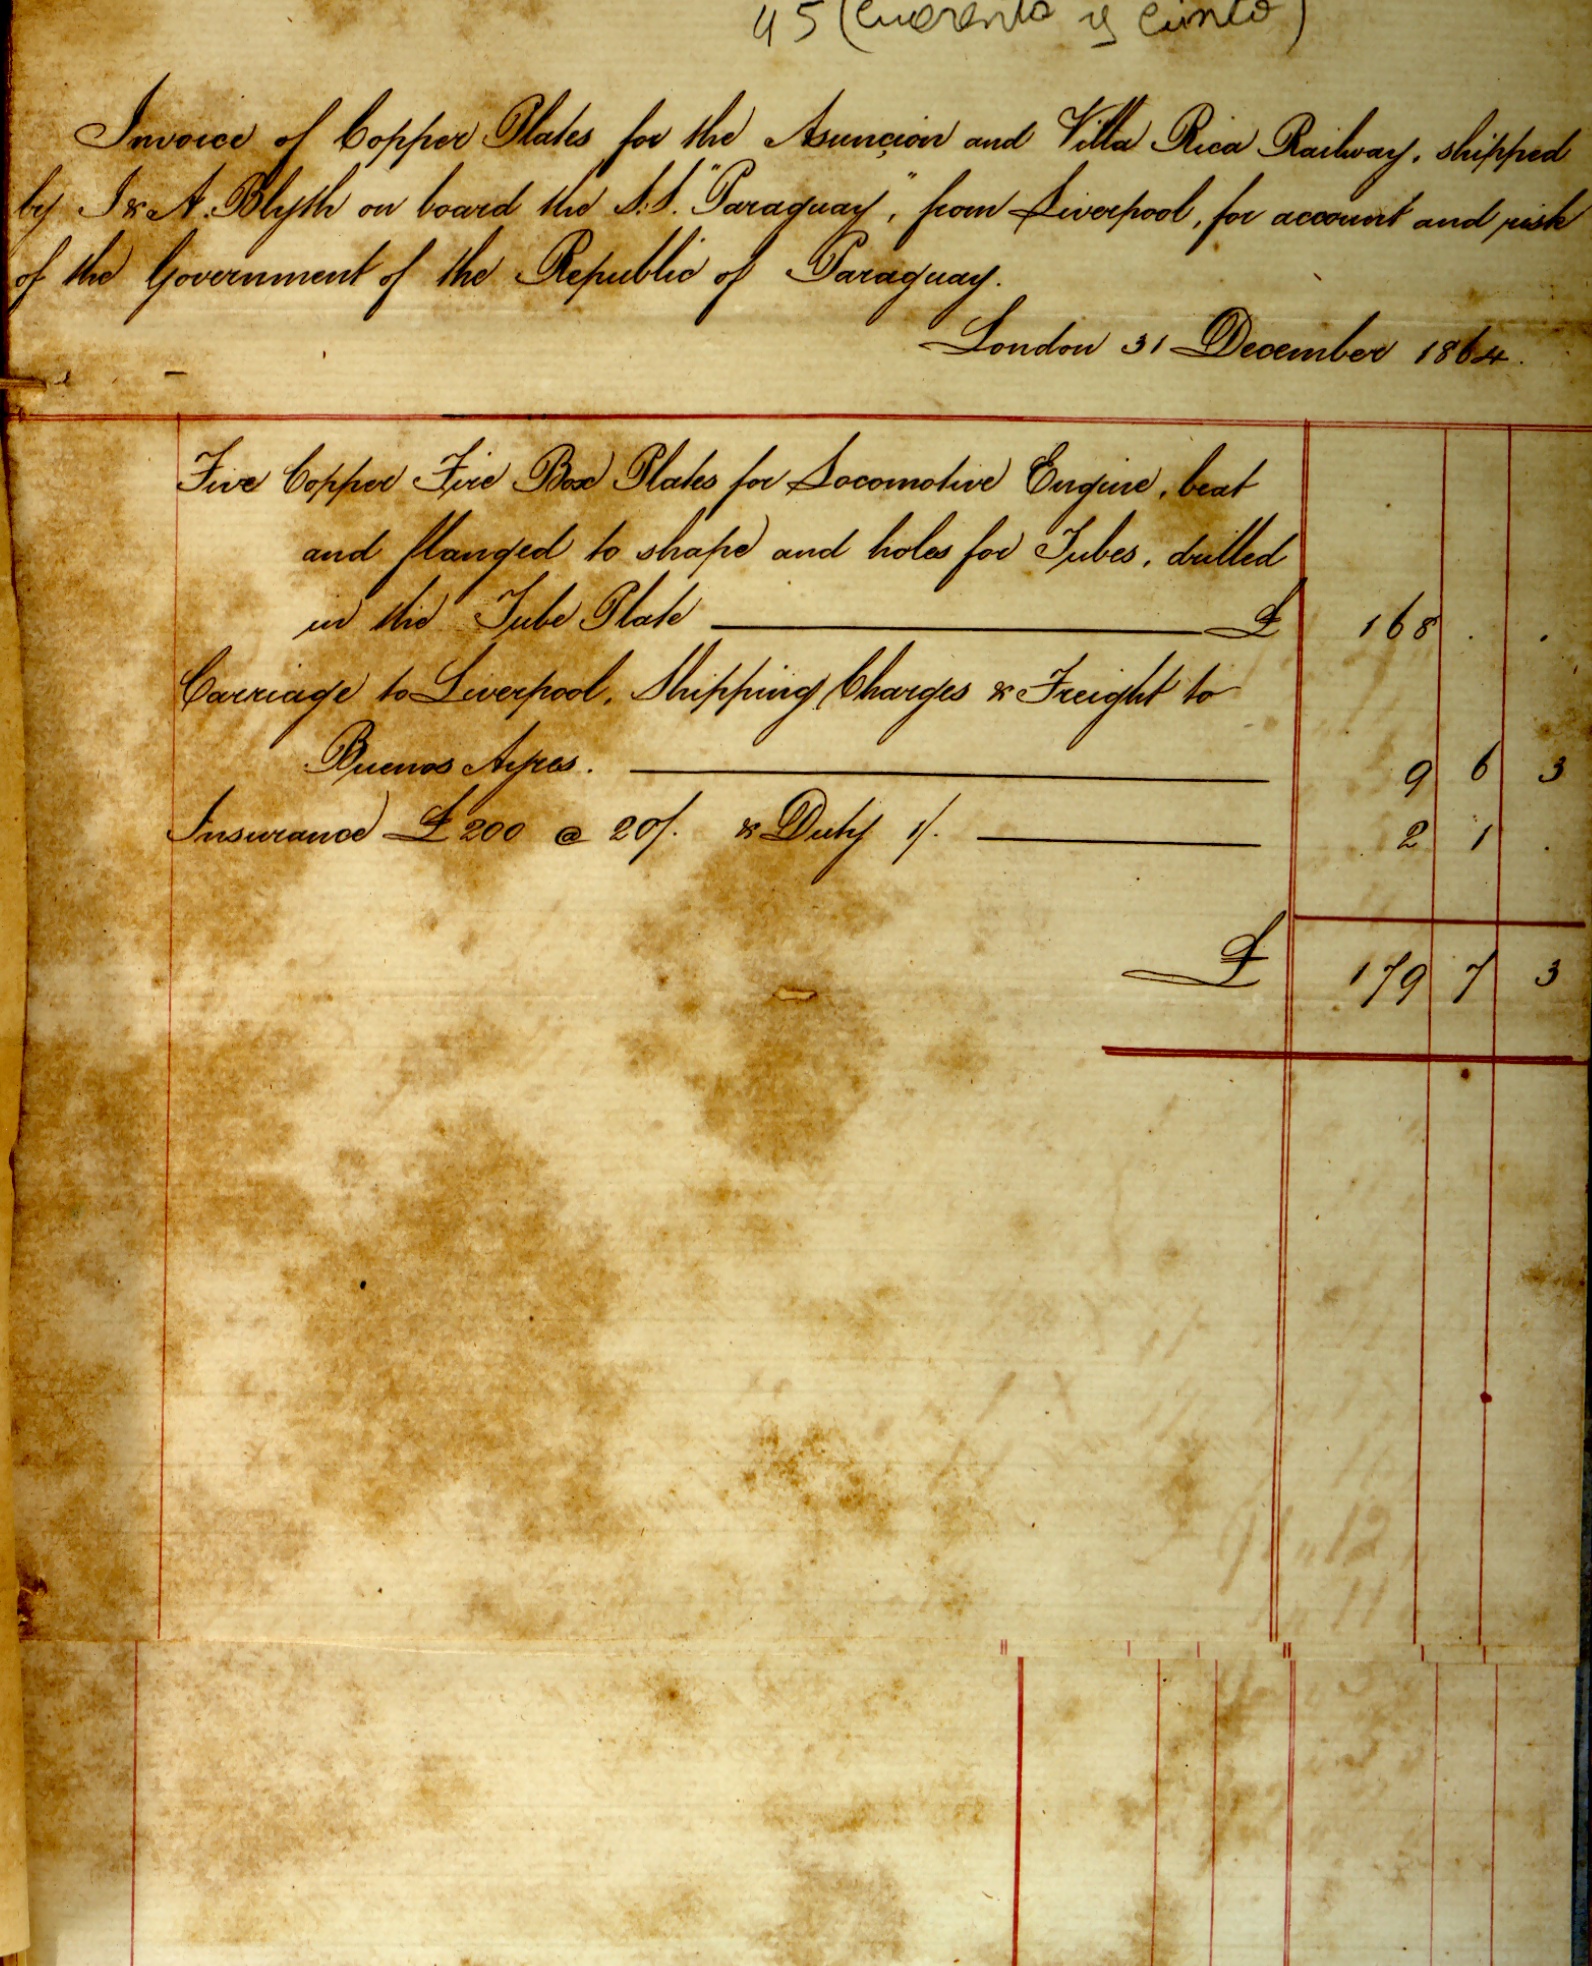 45 (cuarenta y cinco)
Invoice of Copper Plates for the Asunçion and Villa Rica Railway, shipped
by J & A. Blyth on board the S.S. "Paraguay", from Liverpool, for account and risk
of the Government of the Republic of Paraguay.
London 31 December 1864.
Five Copper Fire Box Plates for Locomotive Engine, beat
and flanged to shape and holes for Tubes, drilled
in the Tube Plate £ 168 . .
Carriage to Liverpool, Shipping Charges & Freight to
Buenos Ayres. 9 6 3
Insurance £200 @ 20/. & Duty 1/. 2 1 .
£ 179 7 3